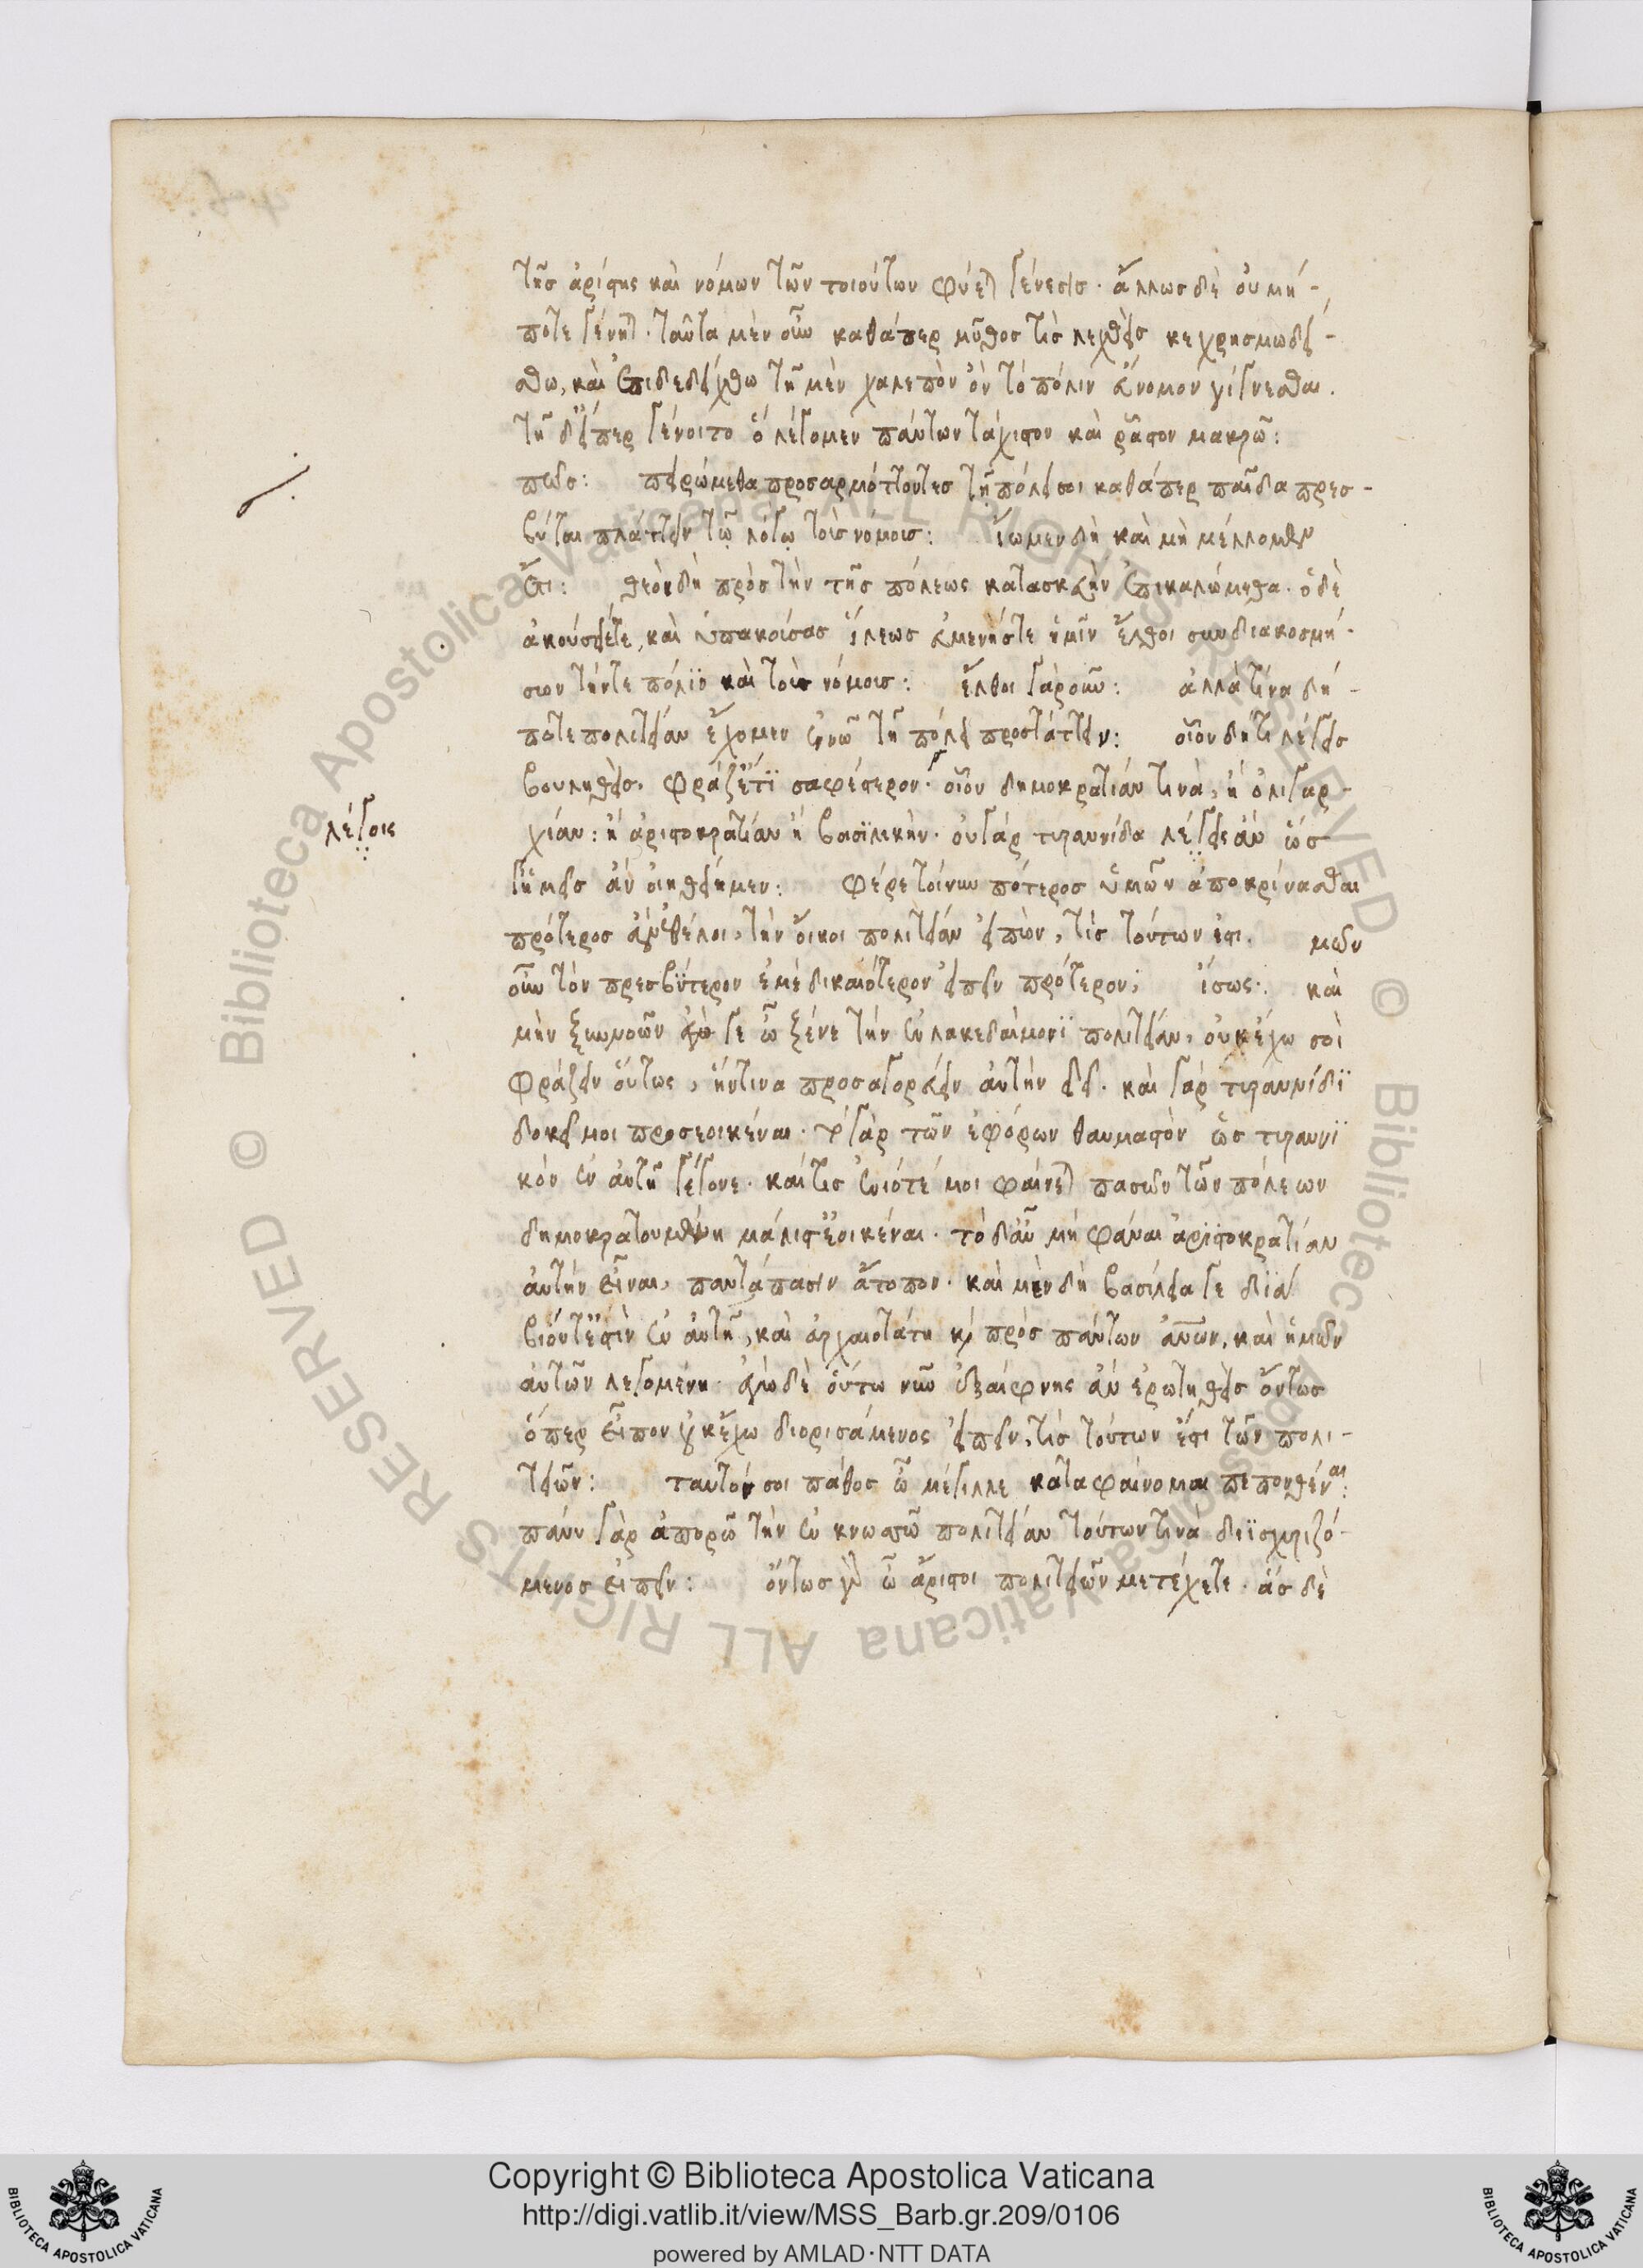 τῆς ἀρίστης καὶ νόμων τῶν τοιούτων φύεται γένεσις. ἄλλως δὲ οὐ μή-
ποτε γένηται. ταῦτα μὲν οὖν καθάπερ μῦθος τὶς λεχθεὶς κεχρησμωδεί-
σθω, καὶ ἐπιδεδείχθω τῆ μὲν χαλεπὸν ὂν τὸ πόλιν εὔνομον γίγνεσθαι.
τῆ δ' εἴπερ γένοιτο ὃ λέγομεν πάντων τάχιστον καὶ ῥᾷστον μακρῶ:
πῶς: πειρώμεθα προσαρμόττοντες τῇ πόλει σοι καθάπερ παῖδα πρεσ-
βύται πλάττειν τῷ λόγῳ τοὺς νόμους: ἴωμεν δὴ καὶ μὴ μέλλομεν
ἔτι: θεὸν δὴ πρὸς τὴν τῆς πόλεως κατασκευὴν ἐπικαλώμεθα. ὁ δὲ
ἀκούσειέτε, καὶ ὑπακούσας ἵλεως εὐμενήστε ἡμῖν ἔλθοι συνδιακοσμή-
σων τήντε πόλιν καὶ τοὺς νόμους: ἔλθοι γὰρ οὖν: ἀλλὰ τίνα δή-
ποτε πολιτείαν ἔχομεν ἐν νῶ τῆ πόλει προστάττειν: οἷον δή τι λέγεις
βουληθεὶς. φράζ' ἔτι σαφέστερον. οἷον δημοκρατίαν τινὰ, ἢ ὀλιγαρ-
χίαν: ἢ ἀριστοκρατίαν ἢ βασιλικὴν. οὐ γὰρ τυραννίδα λέγεις ἂν ὥς
λέγοις
γ' ἡμεῖς ἂν οἰηθείημεν: φέρε τοίνυν πότερος ὑμῶν ἀποκρίνασθαι
πρότερος ἂν ἐθέλοι, τὴν οἴκοι πολιτείαν εἰπὼν, τίς τούτων ἐστι. μῶν
οὖν τὸν πρεσβύτερον ἐμὲ δικαιότερον εἰπεῖν πρότερον; ἴσως: καὶ
μὴν ξυννοῶν γε ὦ ξένε τὴν ἐν λακεδαίμονι πολιτείαν, οὐκ ἔχω σοὶ
φράζειν οὕτως, ἥντινα προσαγορεύειν αὐτὴν δεῖ. καὶ γὰρ τυραννίδι
δοκεῖ μοι προσεοικέναι. τὸ γὰρ τῶν ἐφόρων θαυμαστὸν ὡς τυραννι
κὸν ἐν αὐτῆ γέγονε. καί τις ἐνιότέ μοι φαίνεται πασῶν τῶν πόλεων
δημοκρατουμένη μάλιστ' ἐοικέναι. τὸ δ' αὖ μὴ φάναι ἀριστοκρατίαν
αὐτὴν εἶναι, παντάπασιν ἄτοπον. καὶ μὲν δὴ βασιλεία γε διὰ
βίου τ' ἐστὶν ἐν αὐτῆ, καὶ ἀρχαιοτάτη καὶ πρὸς πάντων ἀνων, καὶ ἡμῶν
αὐτῶν λεγομένη. ἐγὼ δὲ οὕτω νῦν ἐξαίφνης ἂν ἐρωτηθεὶς ὄντως
ὅπερ εἶπον οὐκ ἔχω διορισάμενος εἰπεῖν, τίς τούτων ἐστὶ τῶν πολι-
τειῶν: ταυτόν σοι πάθος ὦ μέγιλλε καταφαίνομαι πεπονθέναι:
πάνυ γὰρ ἀπορῶ τὴν ἐν κνωσῶ πολιτείαν τούτων τινὰ διϊσχυριζό-
μενος εἰπεῖν: ὄντως γὰρ ὦ ἄριστοι πολιτειῶν μετέχετε. ἃς δὲ
Copyright © Biblioteca Apostolica Vaticana
http://digi.vatlib.it/view/MSS_Barb.gr.209/0106
powered by AMLAD·NTT DATA